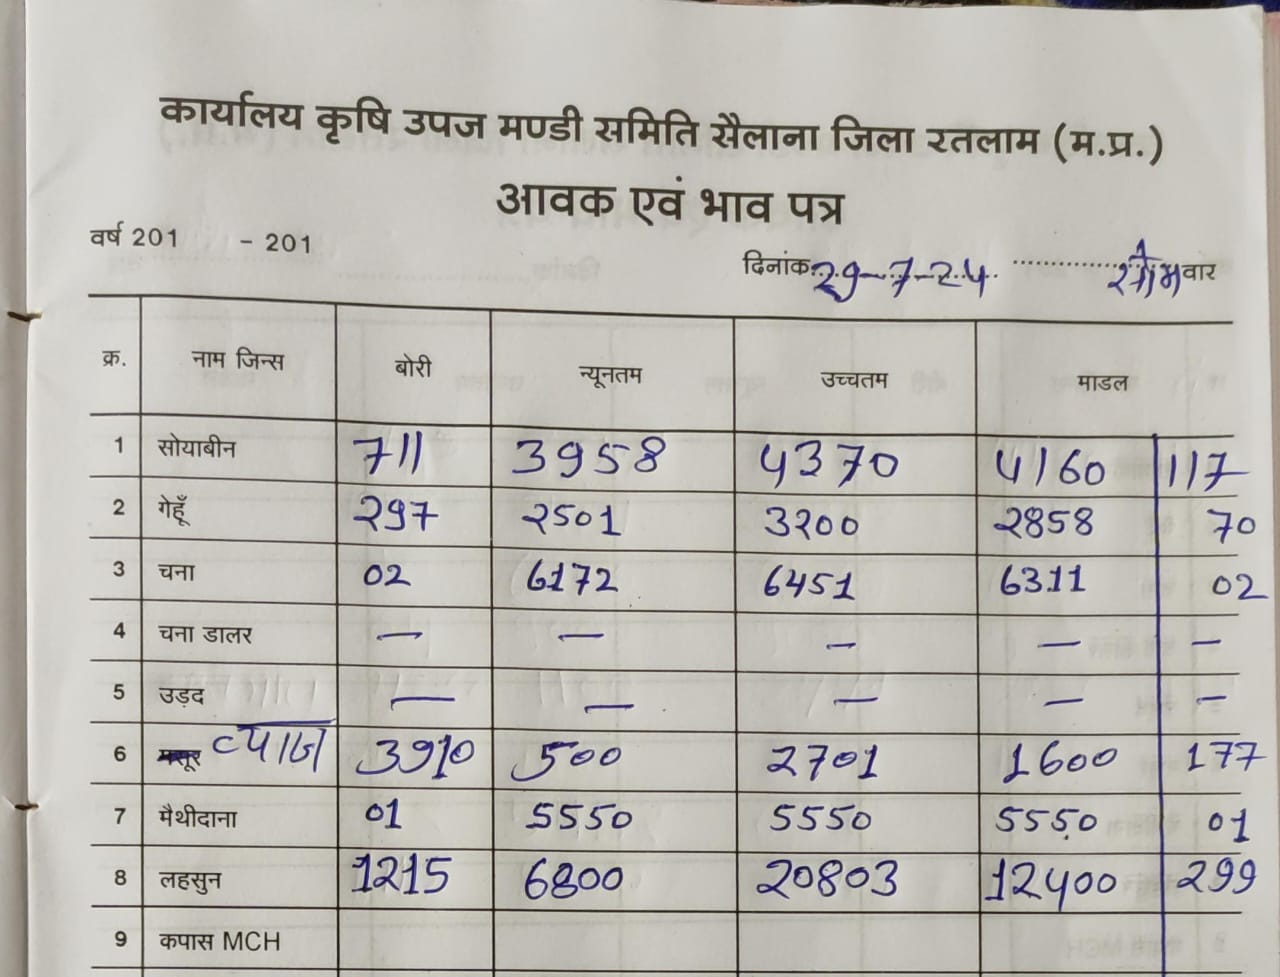 कार्यालय कृषि उपज मण्डी समिति सैलाना जिला रतलाम (म.प्र.)
आवक एवं भाव पत्र
वर्ष 201 - 201
दिनांक 29-7-24 सोमवार
क्र. नाम जिन्स बोरी न्यूनतम उच्चतम माडल
1 सोयाबीन 711 3958 4370 4160 117
2 गेहूँ 297 2501 3200 2858 70
3 चना 02 6172 6451 6311 02
4 चना डालर — — — — —
5 उड़द — — — — —
6 मसूर प्याज 3910 500 2701 1600 177
7 मैथीदाना 01 5550 5550 5550 01
8 लहसुन 1215 6800 20803 12400 299
9 कपास MCH